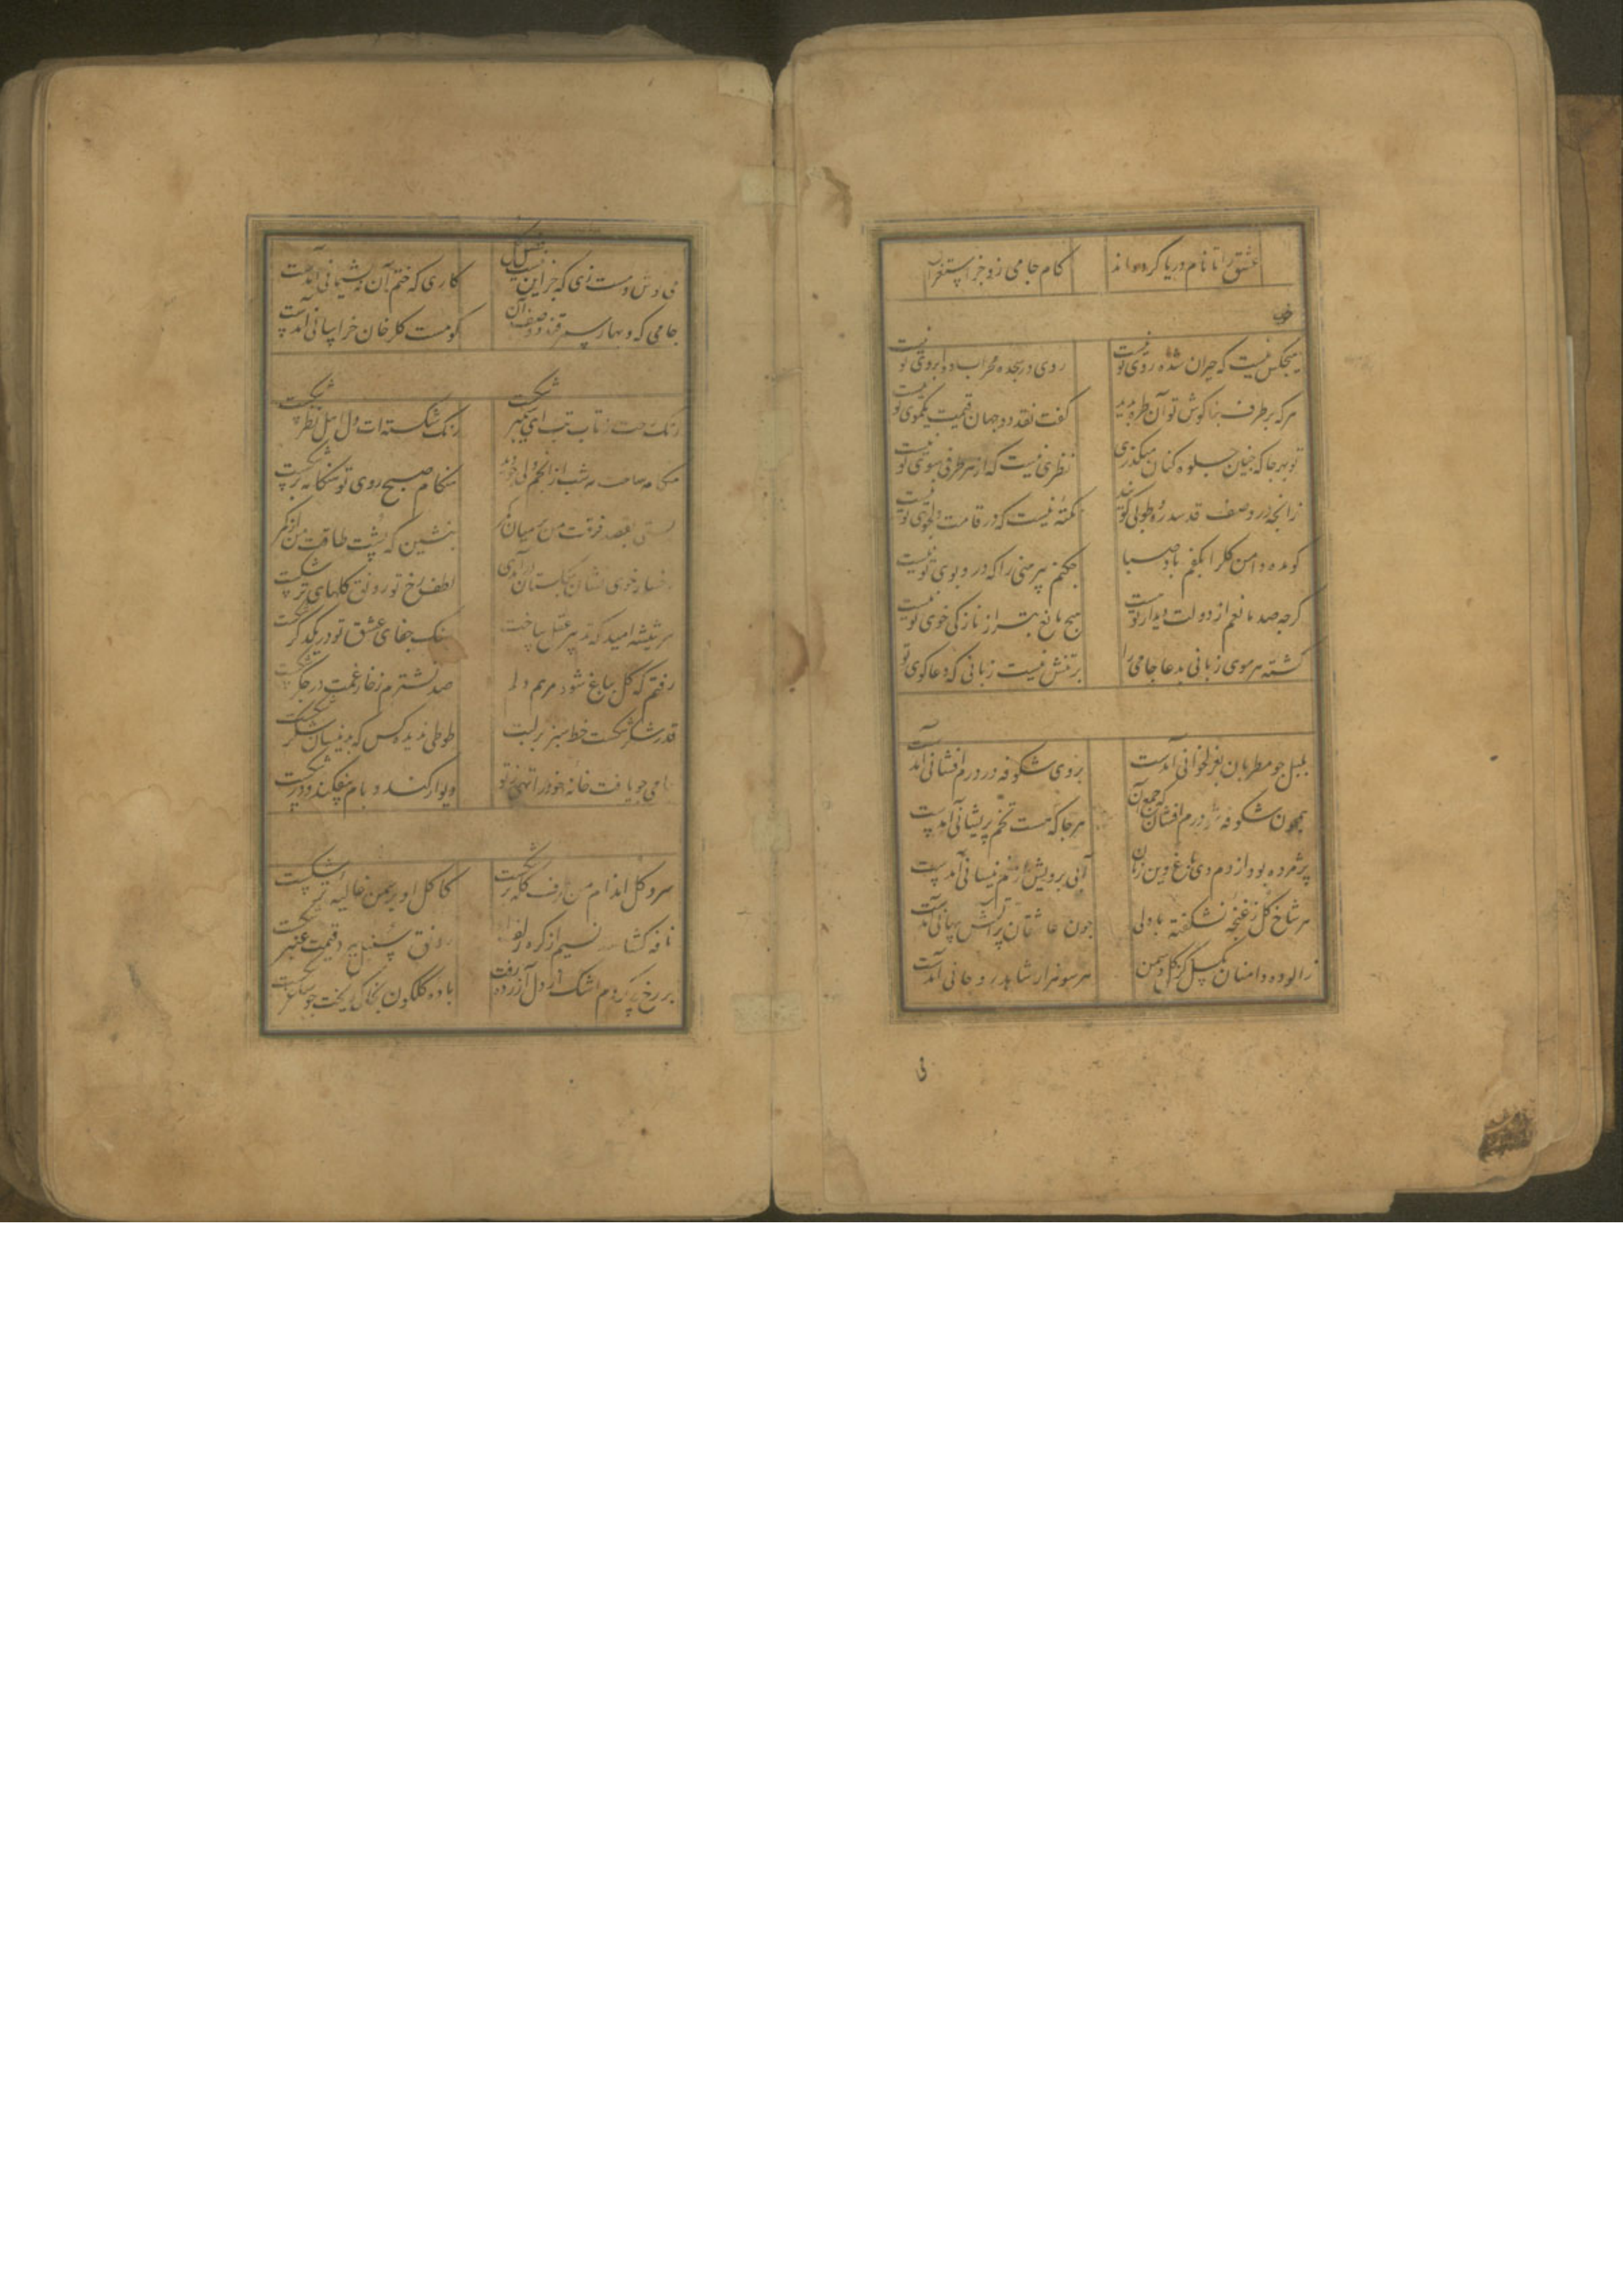 عشق را تا نام دریا کرده‌اند کام جامی زو جز استغراق
هیچکس نیست که حیران شده روی تو نیست روی در سجده محراب دو ابروی تو نیست
هرکه بر طرف بناکوش تو آن طره بدید گفت نقد دو جهان قیمت یکموی تو نیست
تو بهرجا که چنین جلوه کنان میکذری نظری نیست که از هر طرفی سوی تو نیست
زانچه در وصف قد سدره و طوبی کویند نکته نیست که در قامت دلجوی تو نیست
کو مده دامن کل را بکفم باد صبا چکنم پیرهنی را که درو بوی تو نیست
کرچه صد مانعم از دولت دیدار تو هست هیچ مانع بتر از نازکی خوی تو نیست
کشته هر موی زبانی بدعا جامی را بر تنش نیست زبانی که دعاکوی تو
بلبل چو مطربان بغزلخوانی آمدست بروی شکوفه در درم افشانی آمدست
همچون شکوفه درم افشان که جمع آن هرجا که هست تخم پریشانی آمدست
پژمرده بود از دم دی باغ وین زمان آبی برویش از نم نیسانی آمدست
هر شاخ کل ز غنچه نشکفته با دلی چون عاشقان پر آتش پنهانی آمدست
نالوده دامنان کسل کز کل و سمن هر سو هزار شاهد روحانی آمدست
فی
می نوش و مست زی که جز این نیست کاری که ختم آن نه پشیمانی آمدست
جامی که در بهار سمرقند وصف آن کو مست کلرخان خراسانی آمدست
رنک تب ای شکست رنک شکسته‌ات دل اهل نظر شکست
شب از انجم ولی هنکام صبح روی تو هنکامه بر شکست
بقصد فرقت من بر میان کمر بنشین که پشت طاقت من زان کمر شکست
رخسار خوی فشان بکلستان درآمدی لطف رخ تو رونق کلهای تر شکست
هر شیشه امید که تدبیر عقل ساخت سنک جفای عشق تو در یکدکر شکست
رفتم که کل بباغ شود مرهم دلم صد نشترم ز خار غمت در جکر شکست
قدر شکر شکست خط سبز بر لبت طوطی ندیده کس که بدینسان شکر شکست
جامی چو یافت خانه خود را تهی ز تو دیوار کند و بام بیفکند و در شکست
سرو کل اندام من طرف کله بر شکست کاکل او بر سمن غالیه تر شکست
نافه کشا نسیم از کره زلف رونق سنبل ببرد قیمت عنبر شکست
بر رخ زردم اشک از دل آزرده رفت باده کلکون بخاک ریخت چو ساغر شکست